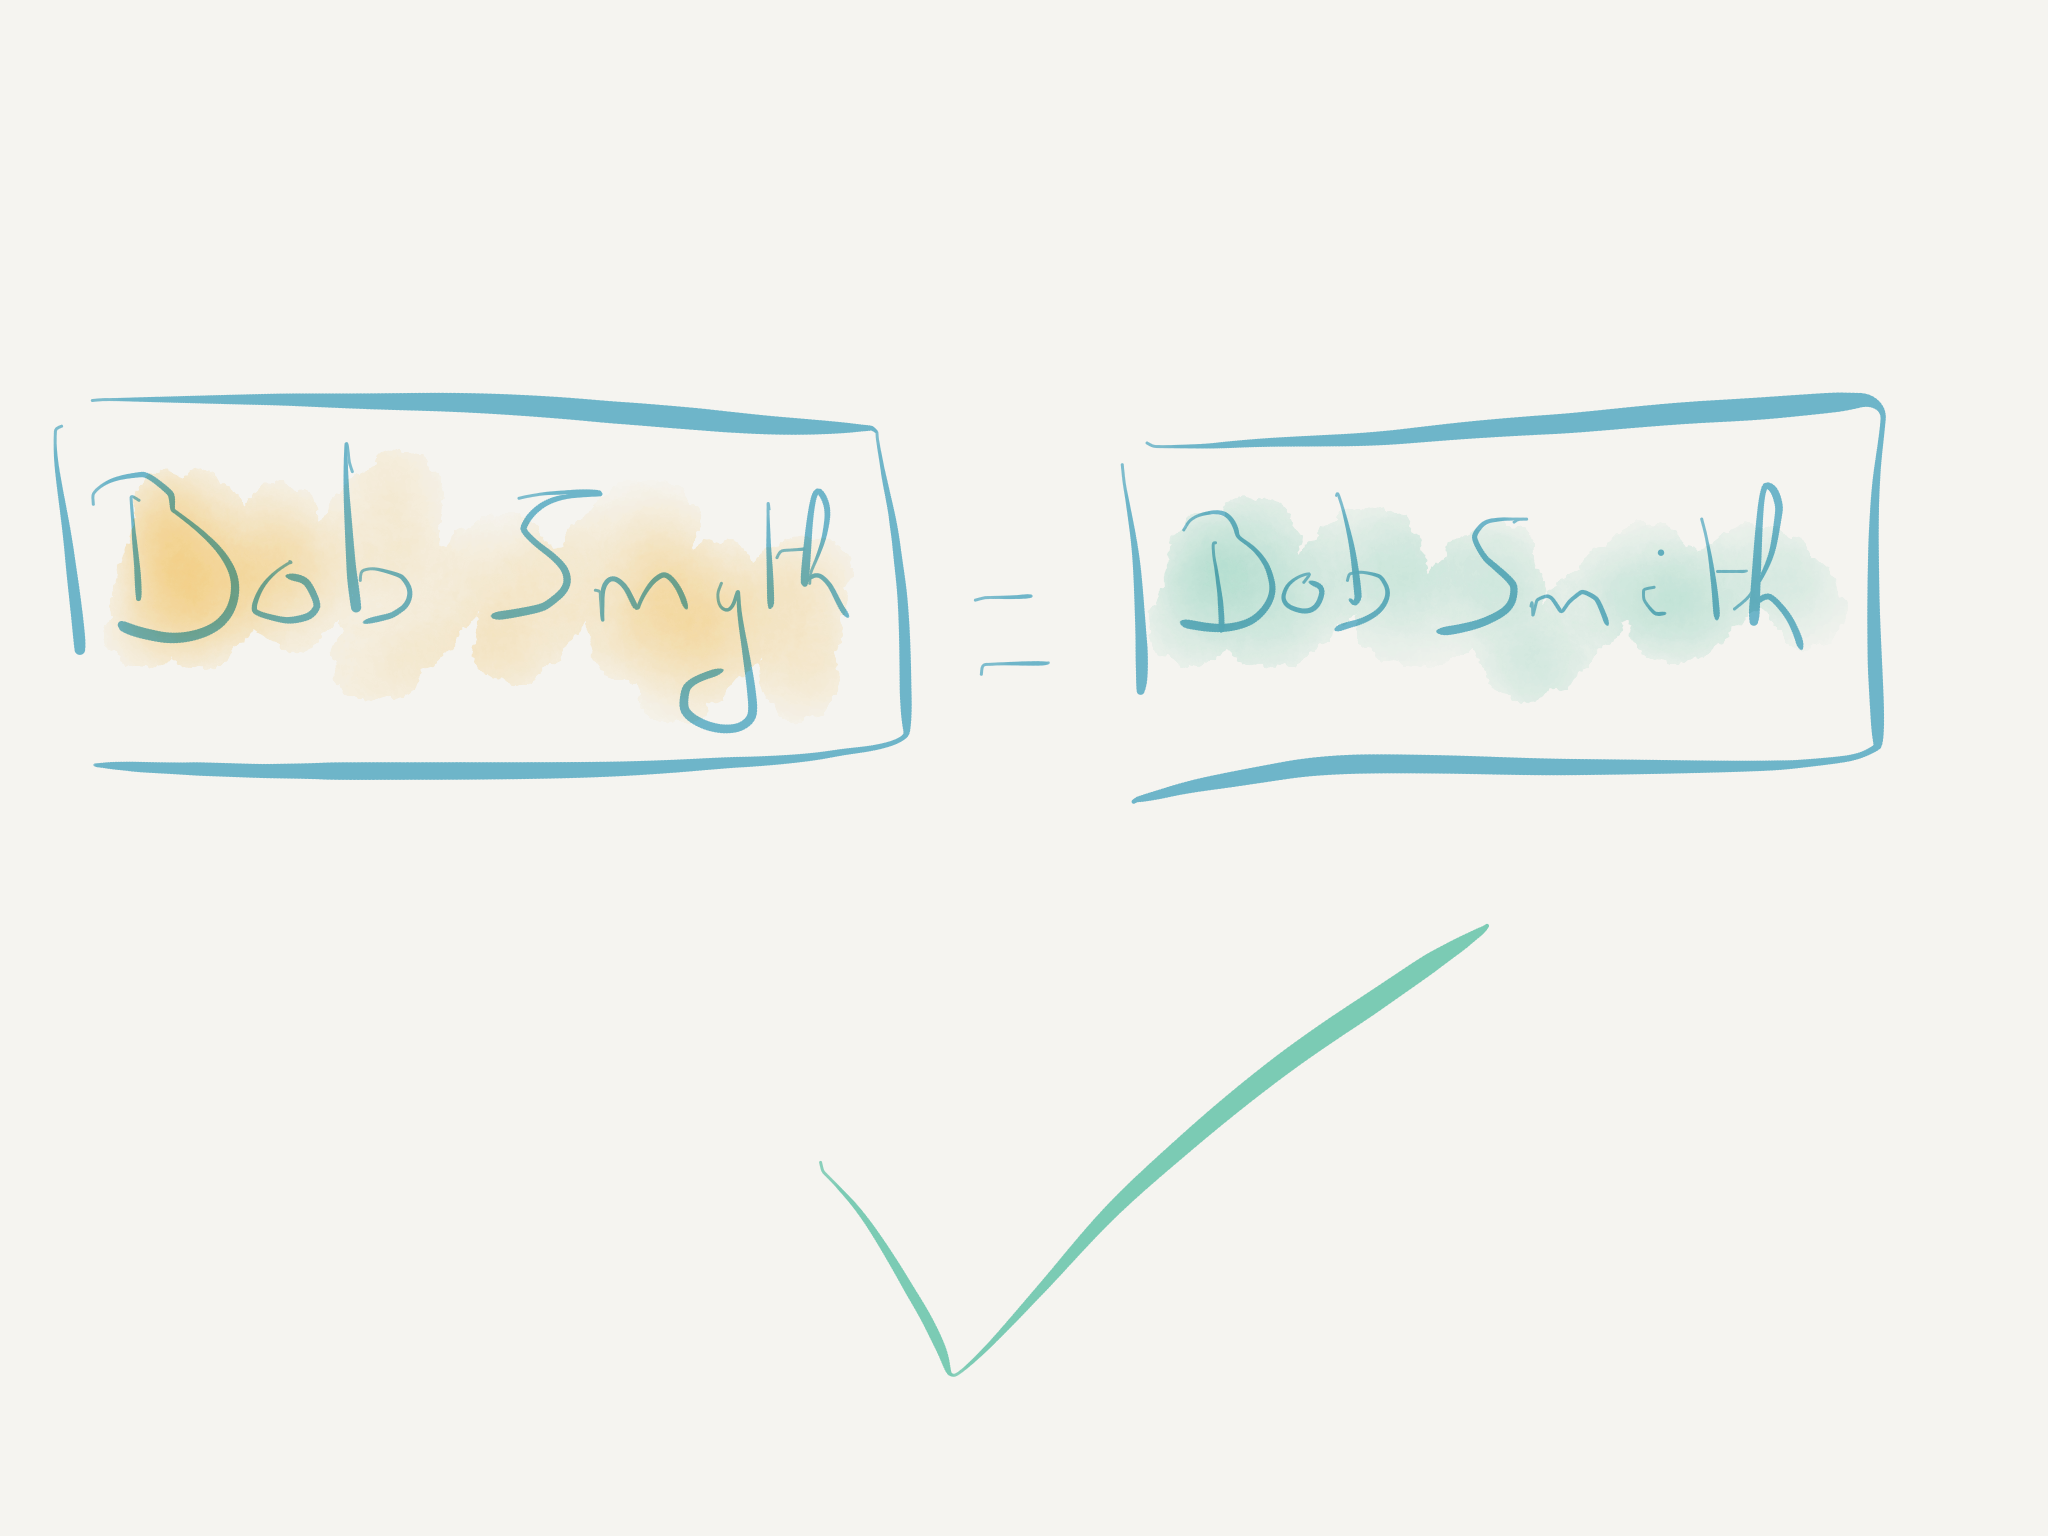 Dob Smyth = Dob Smith